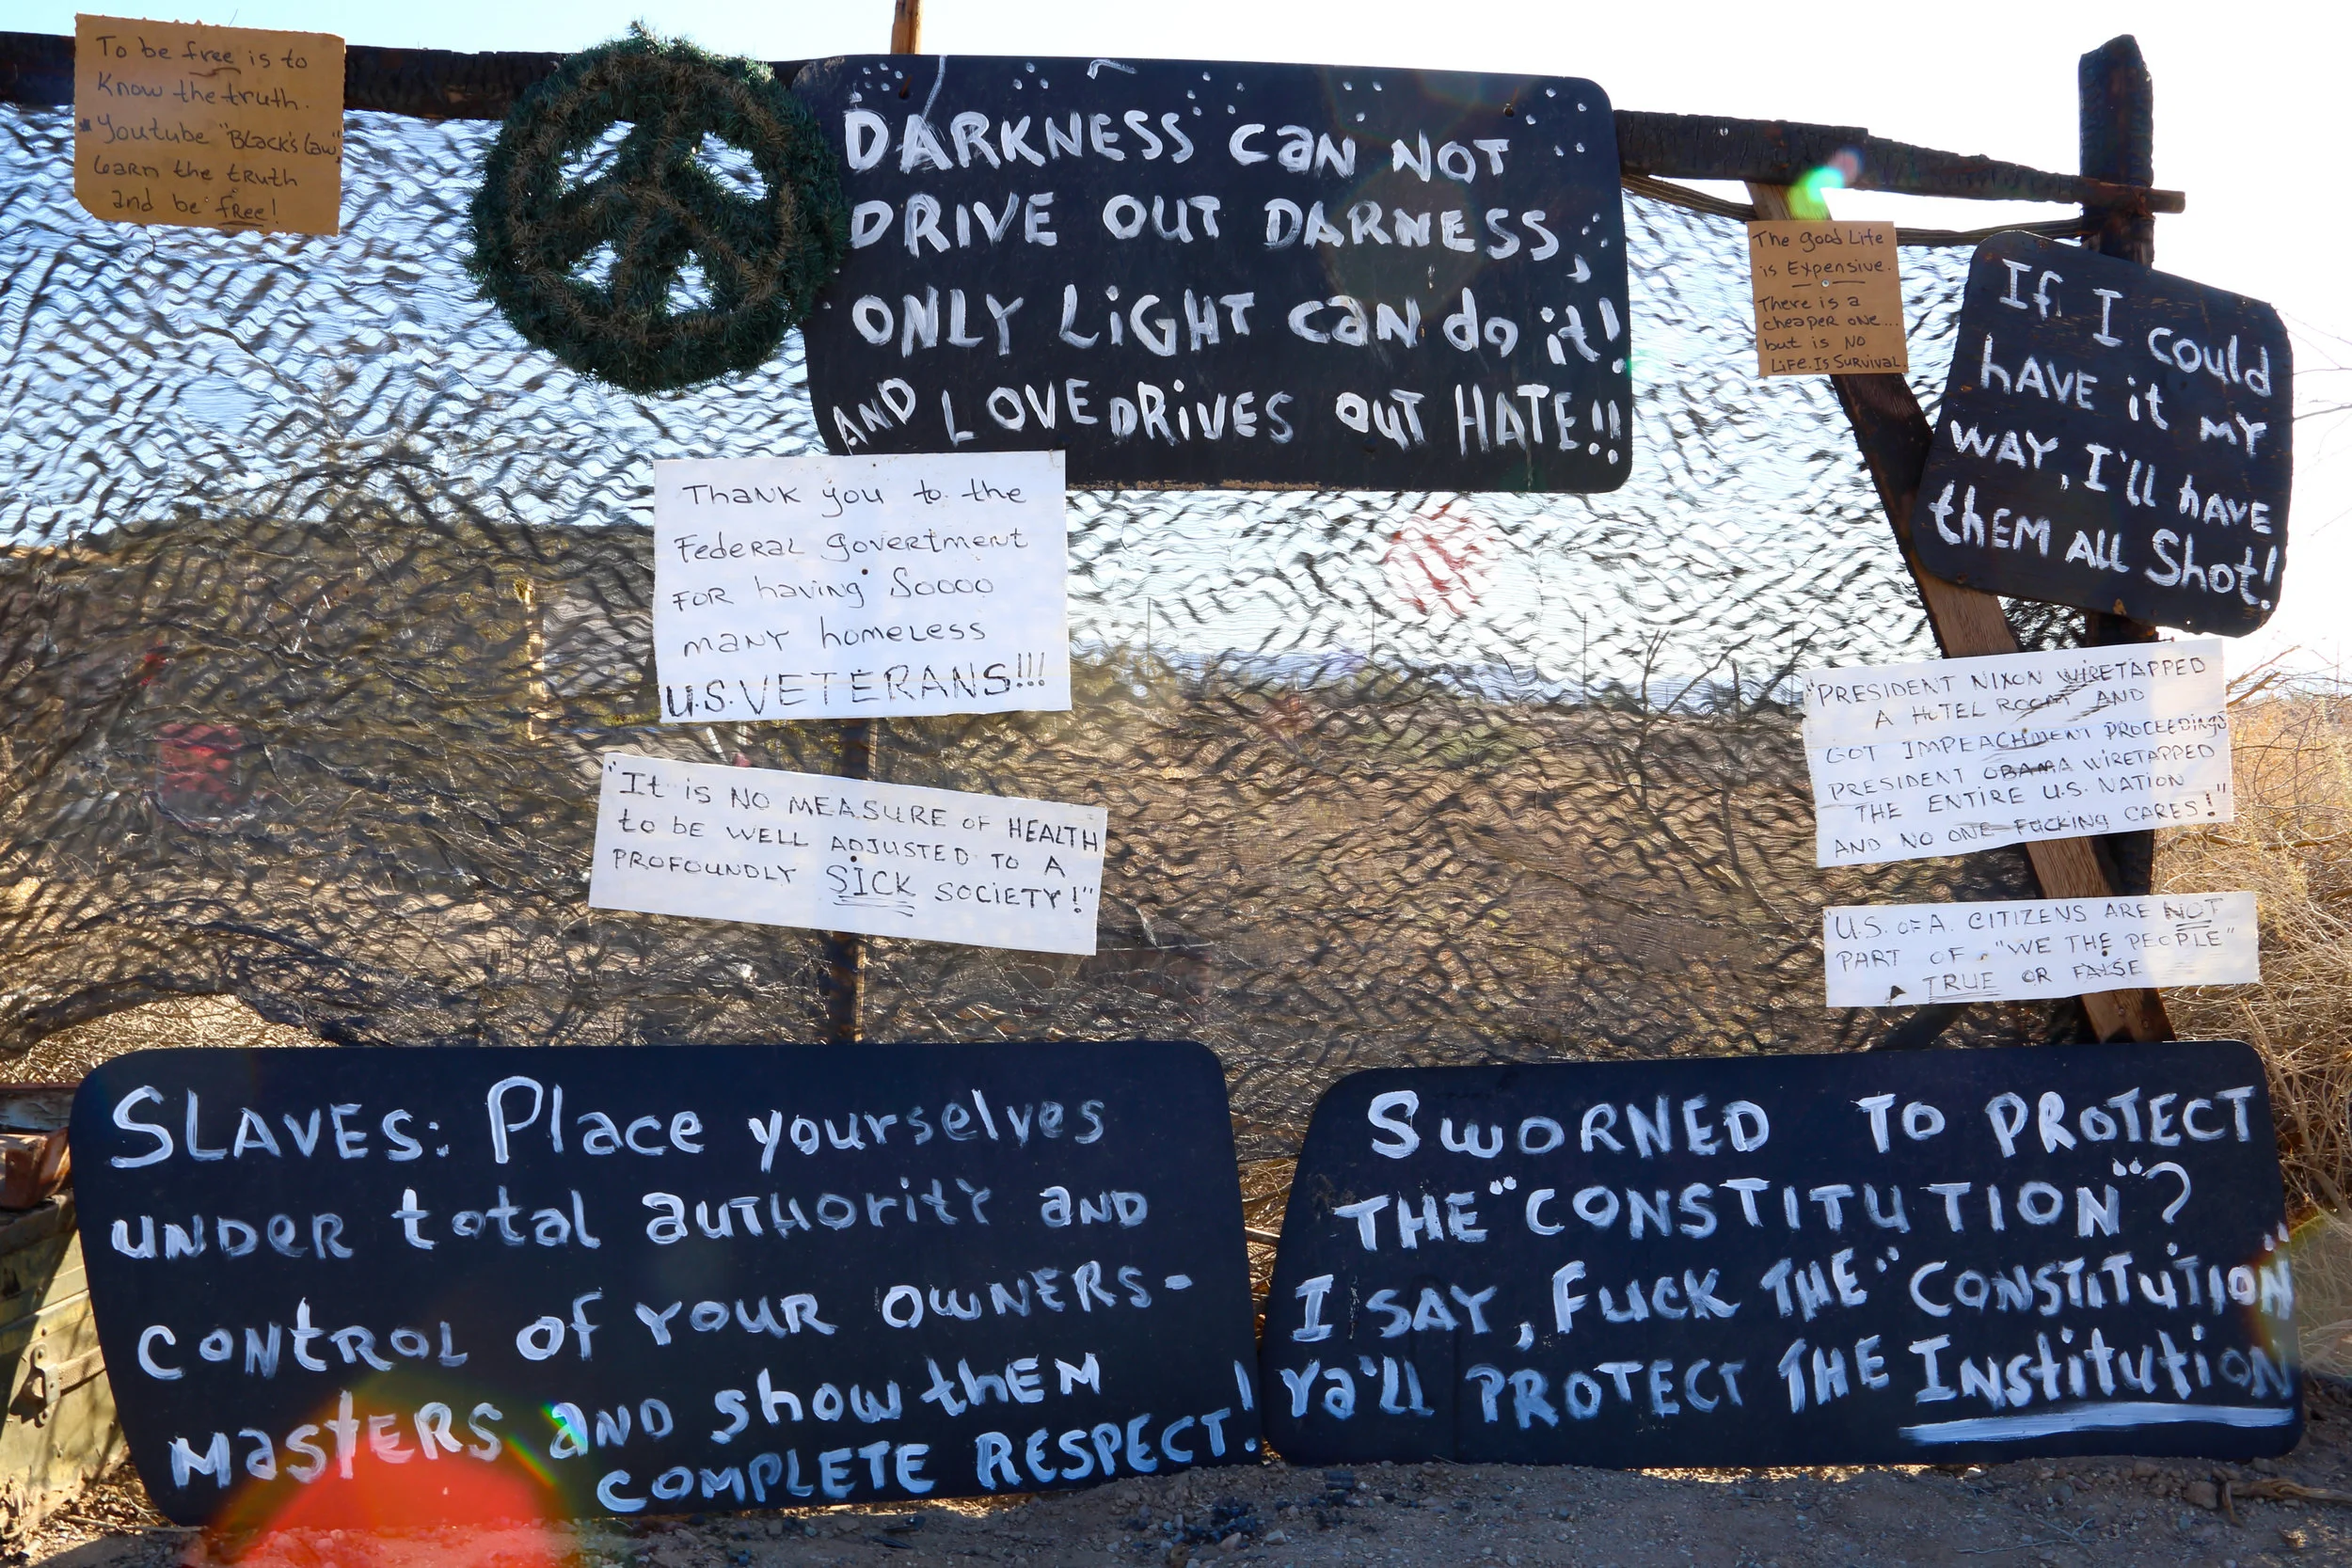 To be free is to
Know the truth.
Youtube "Black's Law",
Learn the truth
and be free!
DARKNESS CAN NOT
DRIVE OUT DARNESS,
ONLY LiGHT CAN do it!
AND LOVE DRiVES OUT HATE!!
The good Life
is Expensive.
There is a
cheaper one...
but is NO
Life. Is Survival
If I could
hAVE it MY
WAY, I'll hAVE
thEM All Shot!
Thank you to the
Federal govertment
FOR having Soooo
many homeless
U.S. VETERANS!!!
"It is NO MEASURE OF HEALTH
to be WELL ADJUSTED TO A
PROFOUNDLY SICK SOCIETY!"
"PRESIDENT NIXON WIRETAPPED
A HOTEL ROOM AND
GOT IMPEACHMENT PROCEEDINGS
PRESIDENT OBAMA WIRETAPPED
THE ENTIRE U.S. NATION
AND NO ONE FUCKING CARES!"
"U.S. OF A. CITIZENS ARE NOT
PART OF "WE THE PEOPLE"
TRUE OR FALSE
SLAVES: Place yourselves
UNDER total AUTHORITY AND
CONTROL of YOUR OWNERS-
MASTERS AND show thEM
COMPLETE RESPECT!
SWORNED TO PROTECT
THE "CONSTITUTION"?
I SAY, FUCK THE "CONSTITUTION"
Ya'll PROTECT THE Institution